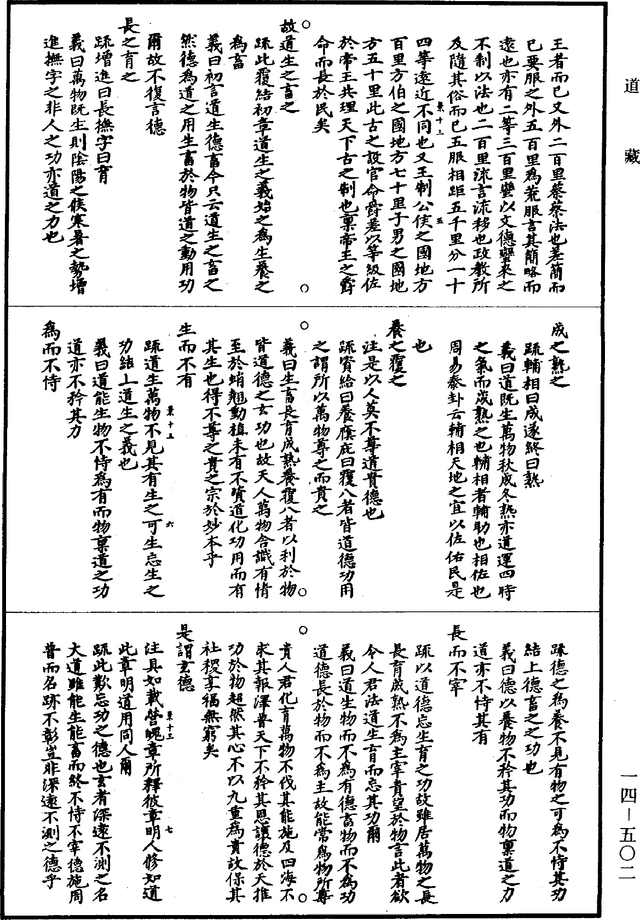 道藏
王者而已又外二百里蔡蔡法也差簡而
已要服之外五百里為荒服言其簡略而
遠也亦有二等三百里蠻以文德蠻來之
不制以法也二百里流言流移也政教所
及隨其俗而已五服相距五千里分一十
四等遠近不同也又王制公侯之國地方
百里方伯之國地方七十里子男之國地
方五十里此古之設官命爵差以等級佐
於帝王共理天下古之制也稟帝王之爵
命而長於民矣
故道生之畜之
疏此覆結初章道生之義始之為生養之
為畜
義曰初言道生德畜今只云道生之畜之
然德為道之用生畜於物皆道之動用功
爾故不復言德
長之育之
疏增進曰長撫字曰育
義曰萬物既生則陰陽之候寒暑之勢增
進撫字之非人之功亦道之力也
成之熟之
疏輔相曰成遂終曰熟
義曰道既生萬物秋成冬熟亦道運四時
之氣而成熟之也輔相者輔助也相佐也
周易泰卦云輔相天地之宜以佐佑民是
也
養之覆之
注是以人莫不尊道貴德也
疏資給曰養廕庇曰覆八者皆道德功用
之謂所以萬物尊之而貴之
義曰生畜長育成熟養覆八者以利於物
皆道德之玄功也故天人萬物含識有情
至於蛸翹動植未有不資道化功用而有
其生也得不尊之貴之宗於妙本乎
生而不有
疏道生萬物不見其有生之可生忘生之
功結上道生之義也
義曰道能生物不恃為有而物稟道之功
道亦不矜其力
為而不恃
疏德之為養不見有物之可為不恃其功
結上德畜之之功也
義曰德以養物不矜其功而物稟道之力
道亦不恃其有
長而不宰
疏以道德忘生育之功故雖居萬物之長
長育成熟不為主宰責望於物言此者欲
令人君法道生育而忘其功爾
義曰道生物而不為有德畜物而不為功
道德長於物而不為主故能常為物所尊
貴人君化育萬物不伐其能施及四海不
求其報澤普天下不矜其恩讓德於天推
功於物超然其心不以九重為貴故保其
社稷享福無窮矣
是謂玄德
注具如載營魄章所釋彼章明人修如道
此章明道用同人爾
疏此歎忘功之德也玄者深遠不測之名
大道雖能生能畜而終不恃不宰德施周
普而名跡不彰豈非深遠不測之德乎
一四—五〇二